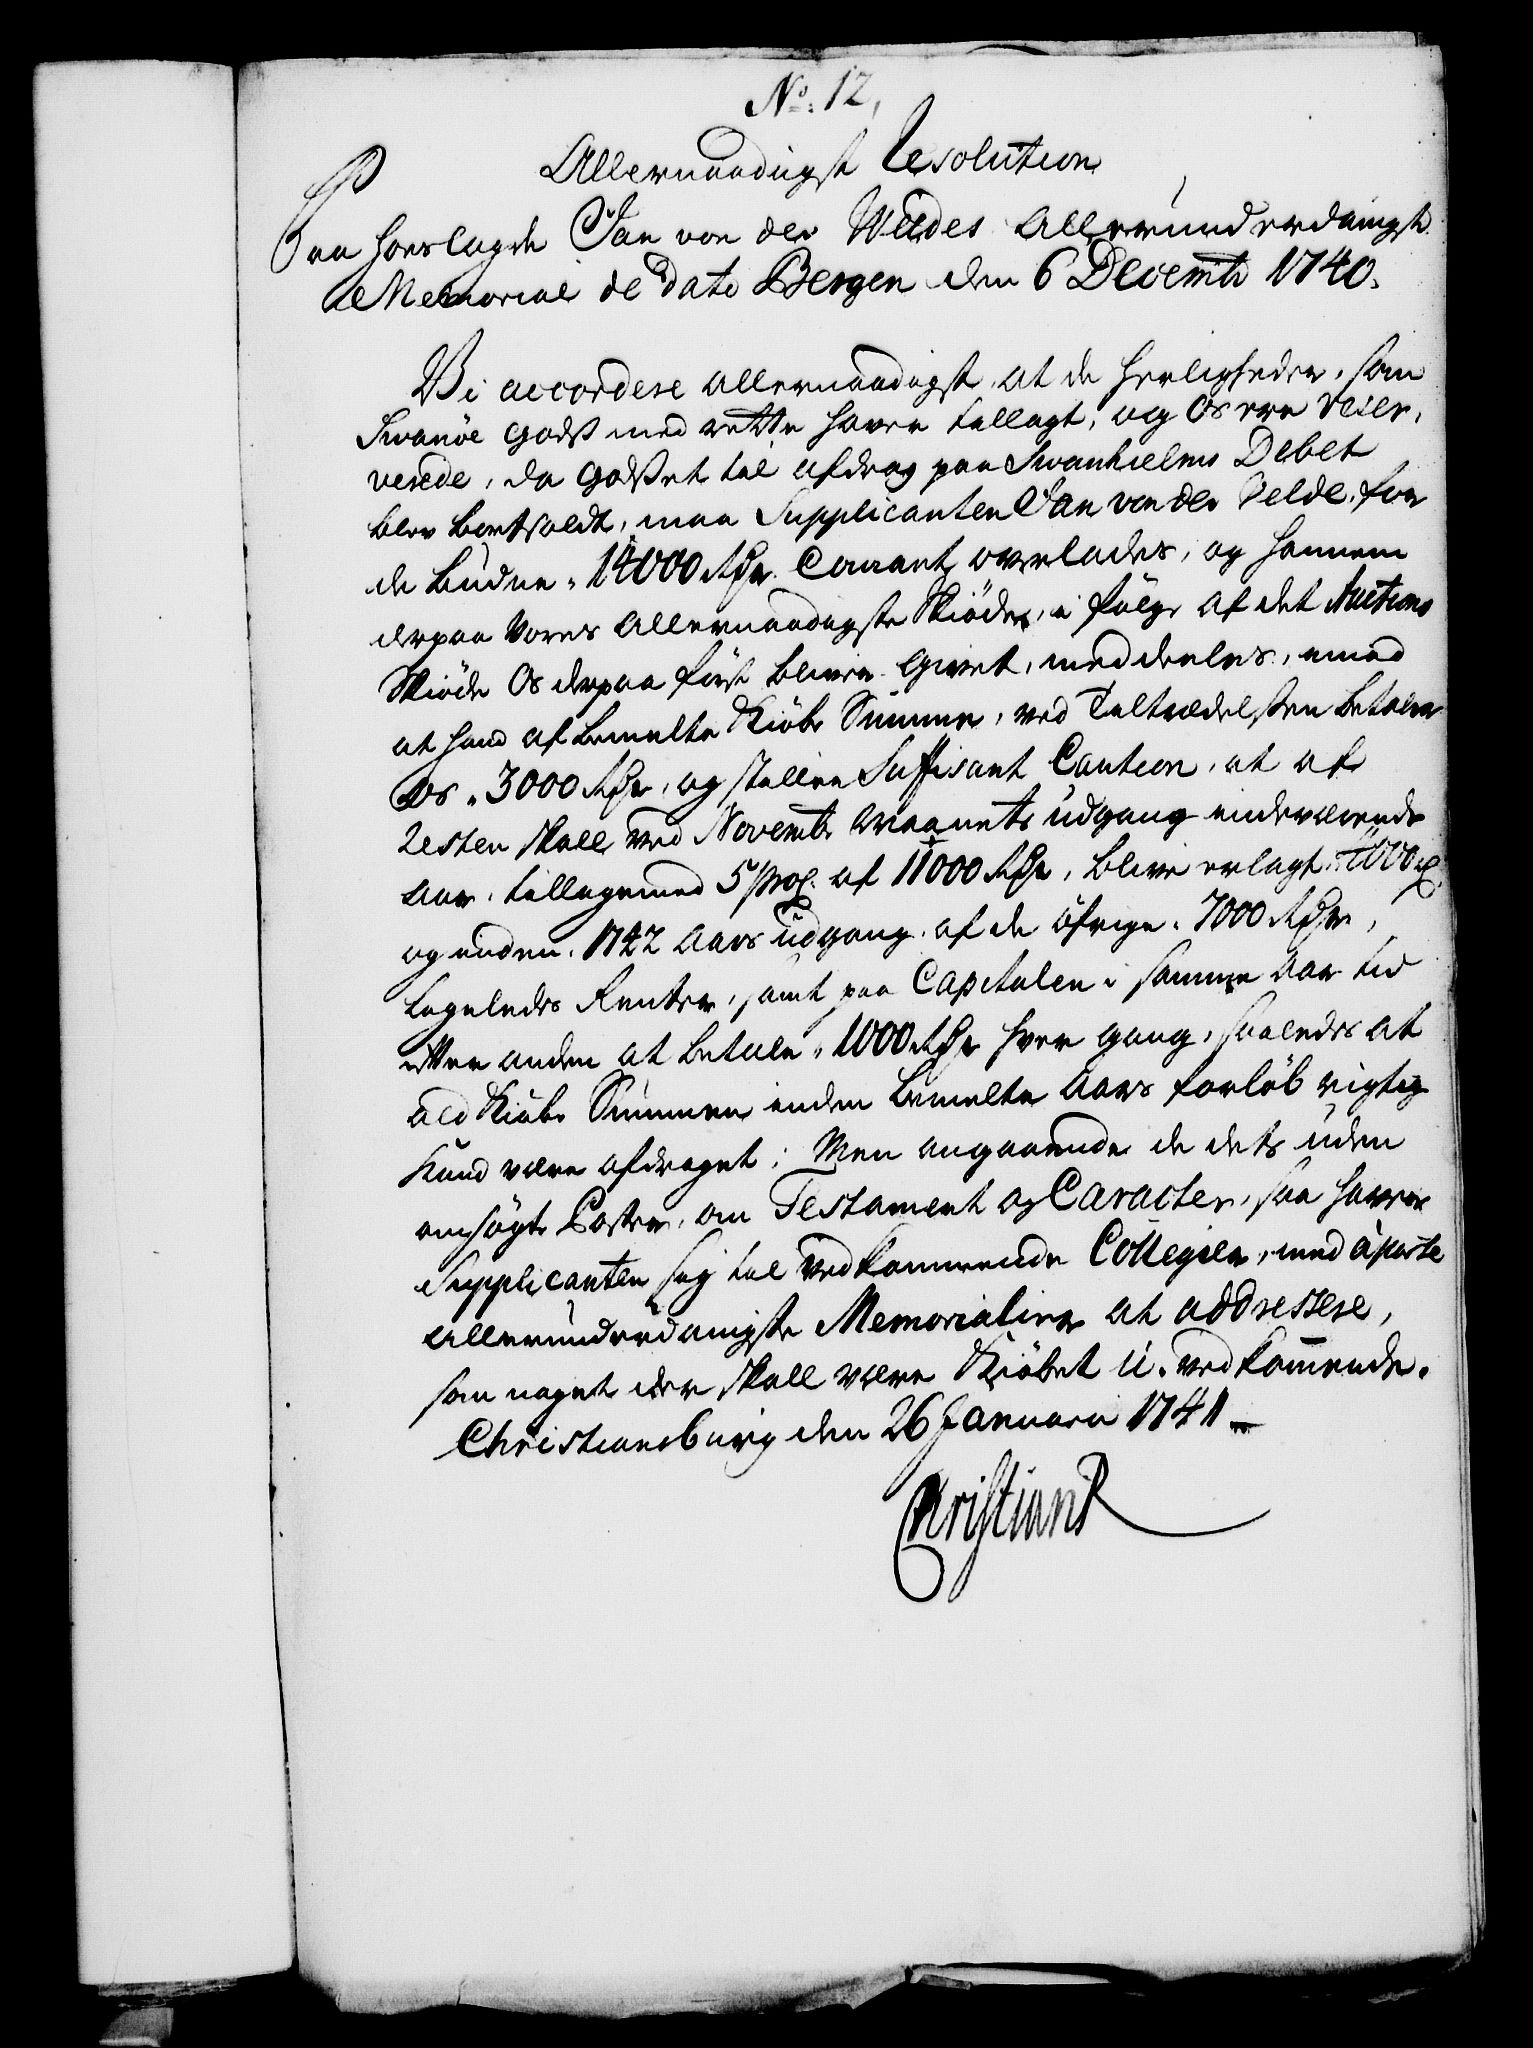 No: 12,
Allernaadigst Resolution
Paa foreslagde Jan von der Weldes Allerunderdanigst
Memorial de dato Bergen den 6 Decembr 1740.
Vi accordere allernaadigst, at de Herligheder, som
Svanöe Godß med rette haver tillagt, og Os ere reser-
verede, da Godßet til afdrag paa Svanhielms Debet
blev bortsoldt, maa Supplicanten Jan von der Velde, for
de budne 14000 Rdr Courant overlades, og hannem
derpaa Vores Allernaadigste Skiöde, i fölge af det Auctions
Skiöde Os derpaa först bliver givet, meddeeles, imod
at hand af bemelte Kiöbe Summa, ved Tiltrædelßen betaler
Os 3000 Rdr, og stiller Suffisant Caution, at af
Resten skall ved Novembr Maanets udgang indeværende
Aar, tillige med 5 proC. af 11000 Rdr, blive erlagt 4000 Rd,
og inden 1742 Aars udgang af de öfrige 7000 Rdr,
ligeledes Renter, samt paa Capitalen i samme Aar tid
efter anden at betale 1000 Rdr hver gang, saaledes at
ald Kiöbe Summen inden bemelte Aars forlöb rigtig
kand være afdraget; Men angaaende de dets uden
ansögte Poster, om Testament og Caracter, saa haver
Supplicanten sig til vedkommende Collegier, med àparte
allerunderdanigste Memorialier at addressere,
som noget der skall være Kiöbet u-vedkommende.
Christiansburg den 26 Januarii 1741
Christian R